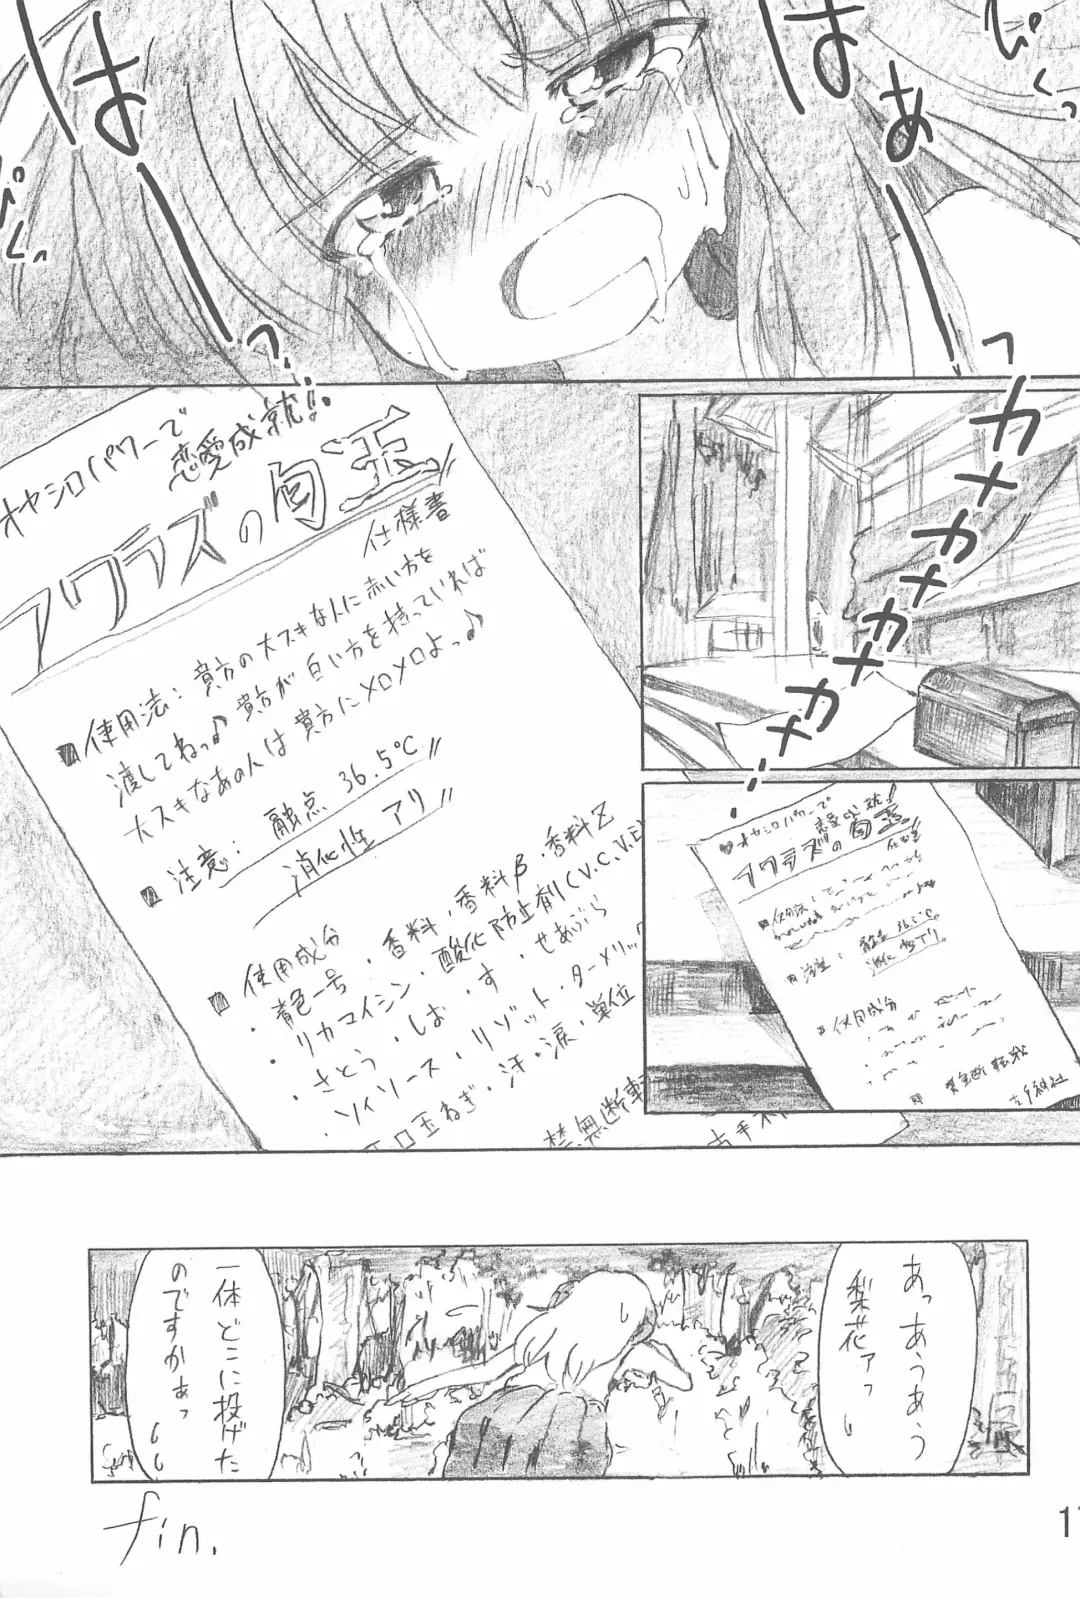 はーっ
はぁーっ
びくっ
びくっ
オヤシロパワーで
恋愛成就!!
フワラズの勾玉
仕様書
■使用法:貴方の大スキな人に赤い方を
渡してねっ♪貴方が白い方を持っていれば
大スキなあの人は貴方にメロメロよっ♪
■注意: 融点 36.5℃
消化性 アリ
■使用成分
・青色一号・香料・香料β・香料Z
・リカマイシン・酸化防止剤(V.C,V.E)
さとう・しお・す・せあぶら
ソイソース・リゾット・ターメリック
玉ねぎ・汗・涙・単位
禁無断転
古手
カメカメカメカメッ…
♥オヤシロパワーで
恋愛成就!
フワラズの勾玉
仕様書
■使用法:
■注意: 融点 36.5℃
消化性アリ
■使用成分
禁無断転載
古手神社
あっあぅあぅ
梨花ァっ
一体どこに投げた
のですかぁっ
fin.